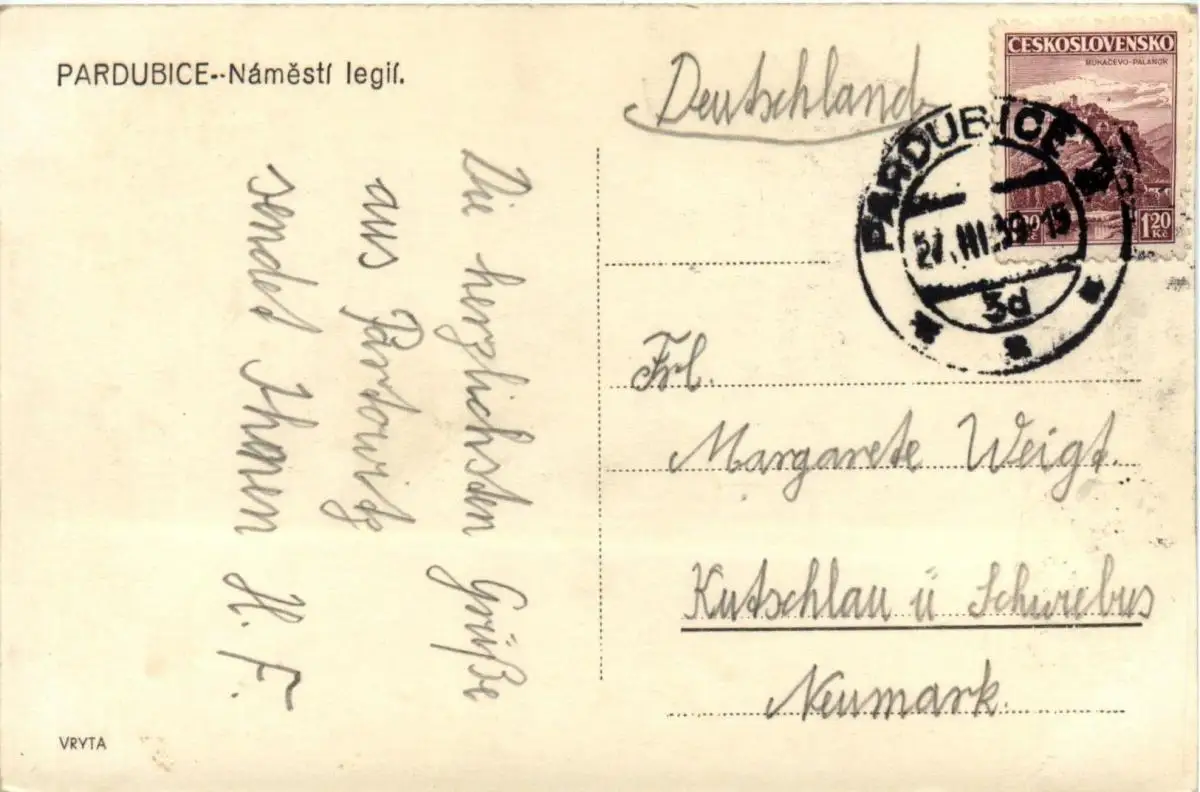 PARDUBICE--Náměstí legií.
Die herzlichsten Grüße
aus Pardubitz
sendet Ihnen H. F.
VRYTA
Deutschland
ČESKOSLOVENSKO
MUKAČEVO-PALANOK
1.20
Kč
PARDUBICE
27.III.39-15
3d
Frl.
Margarete Weigt.
Kutschlau ü Schwiebus
Neumark.